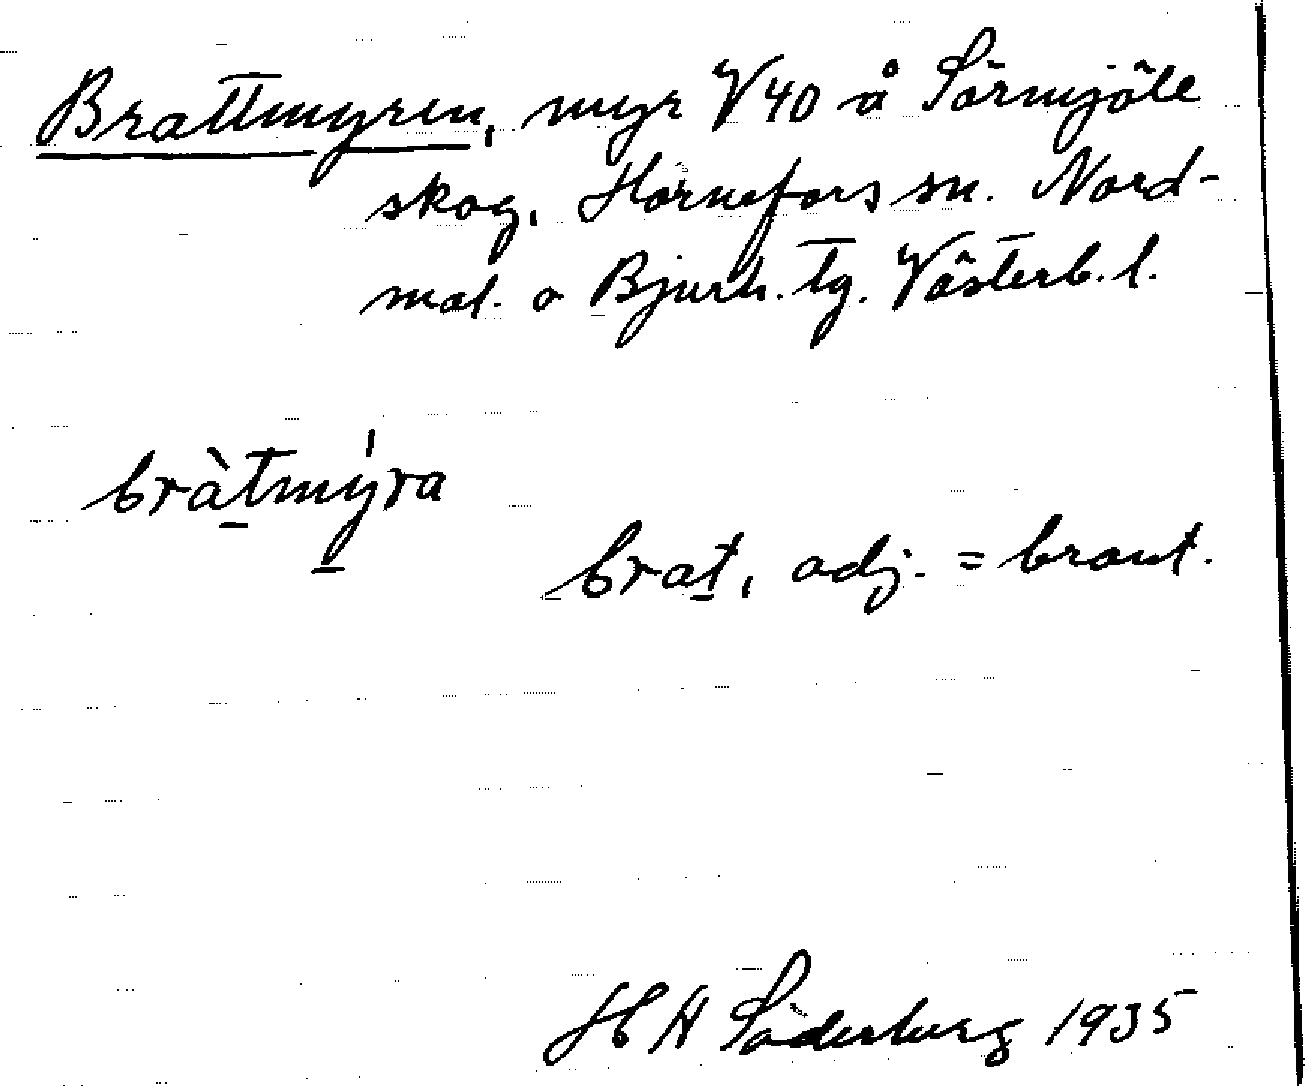 Brattmyren, myr V 40 å Sörmjöle
skog, Hörnefors sn. Nord-
mal. o Bjurh. tg. Västerb. l.
bràtmy̍ra
brat, adj. = brant.
H A Söderberg 1935